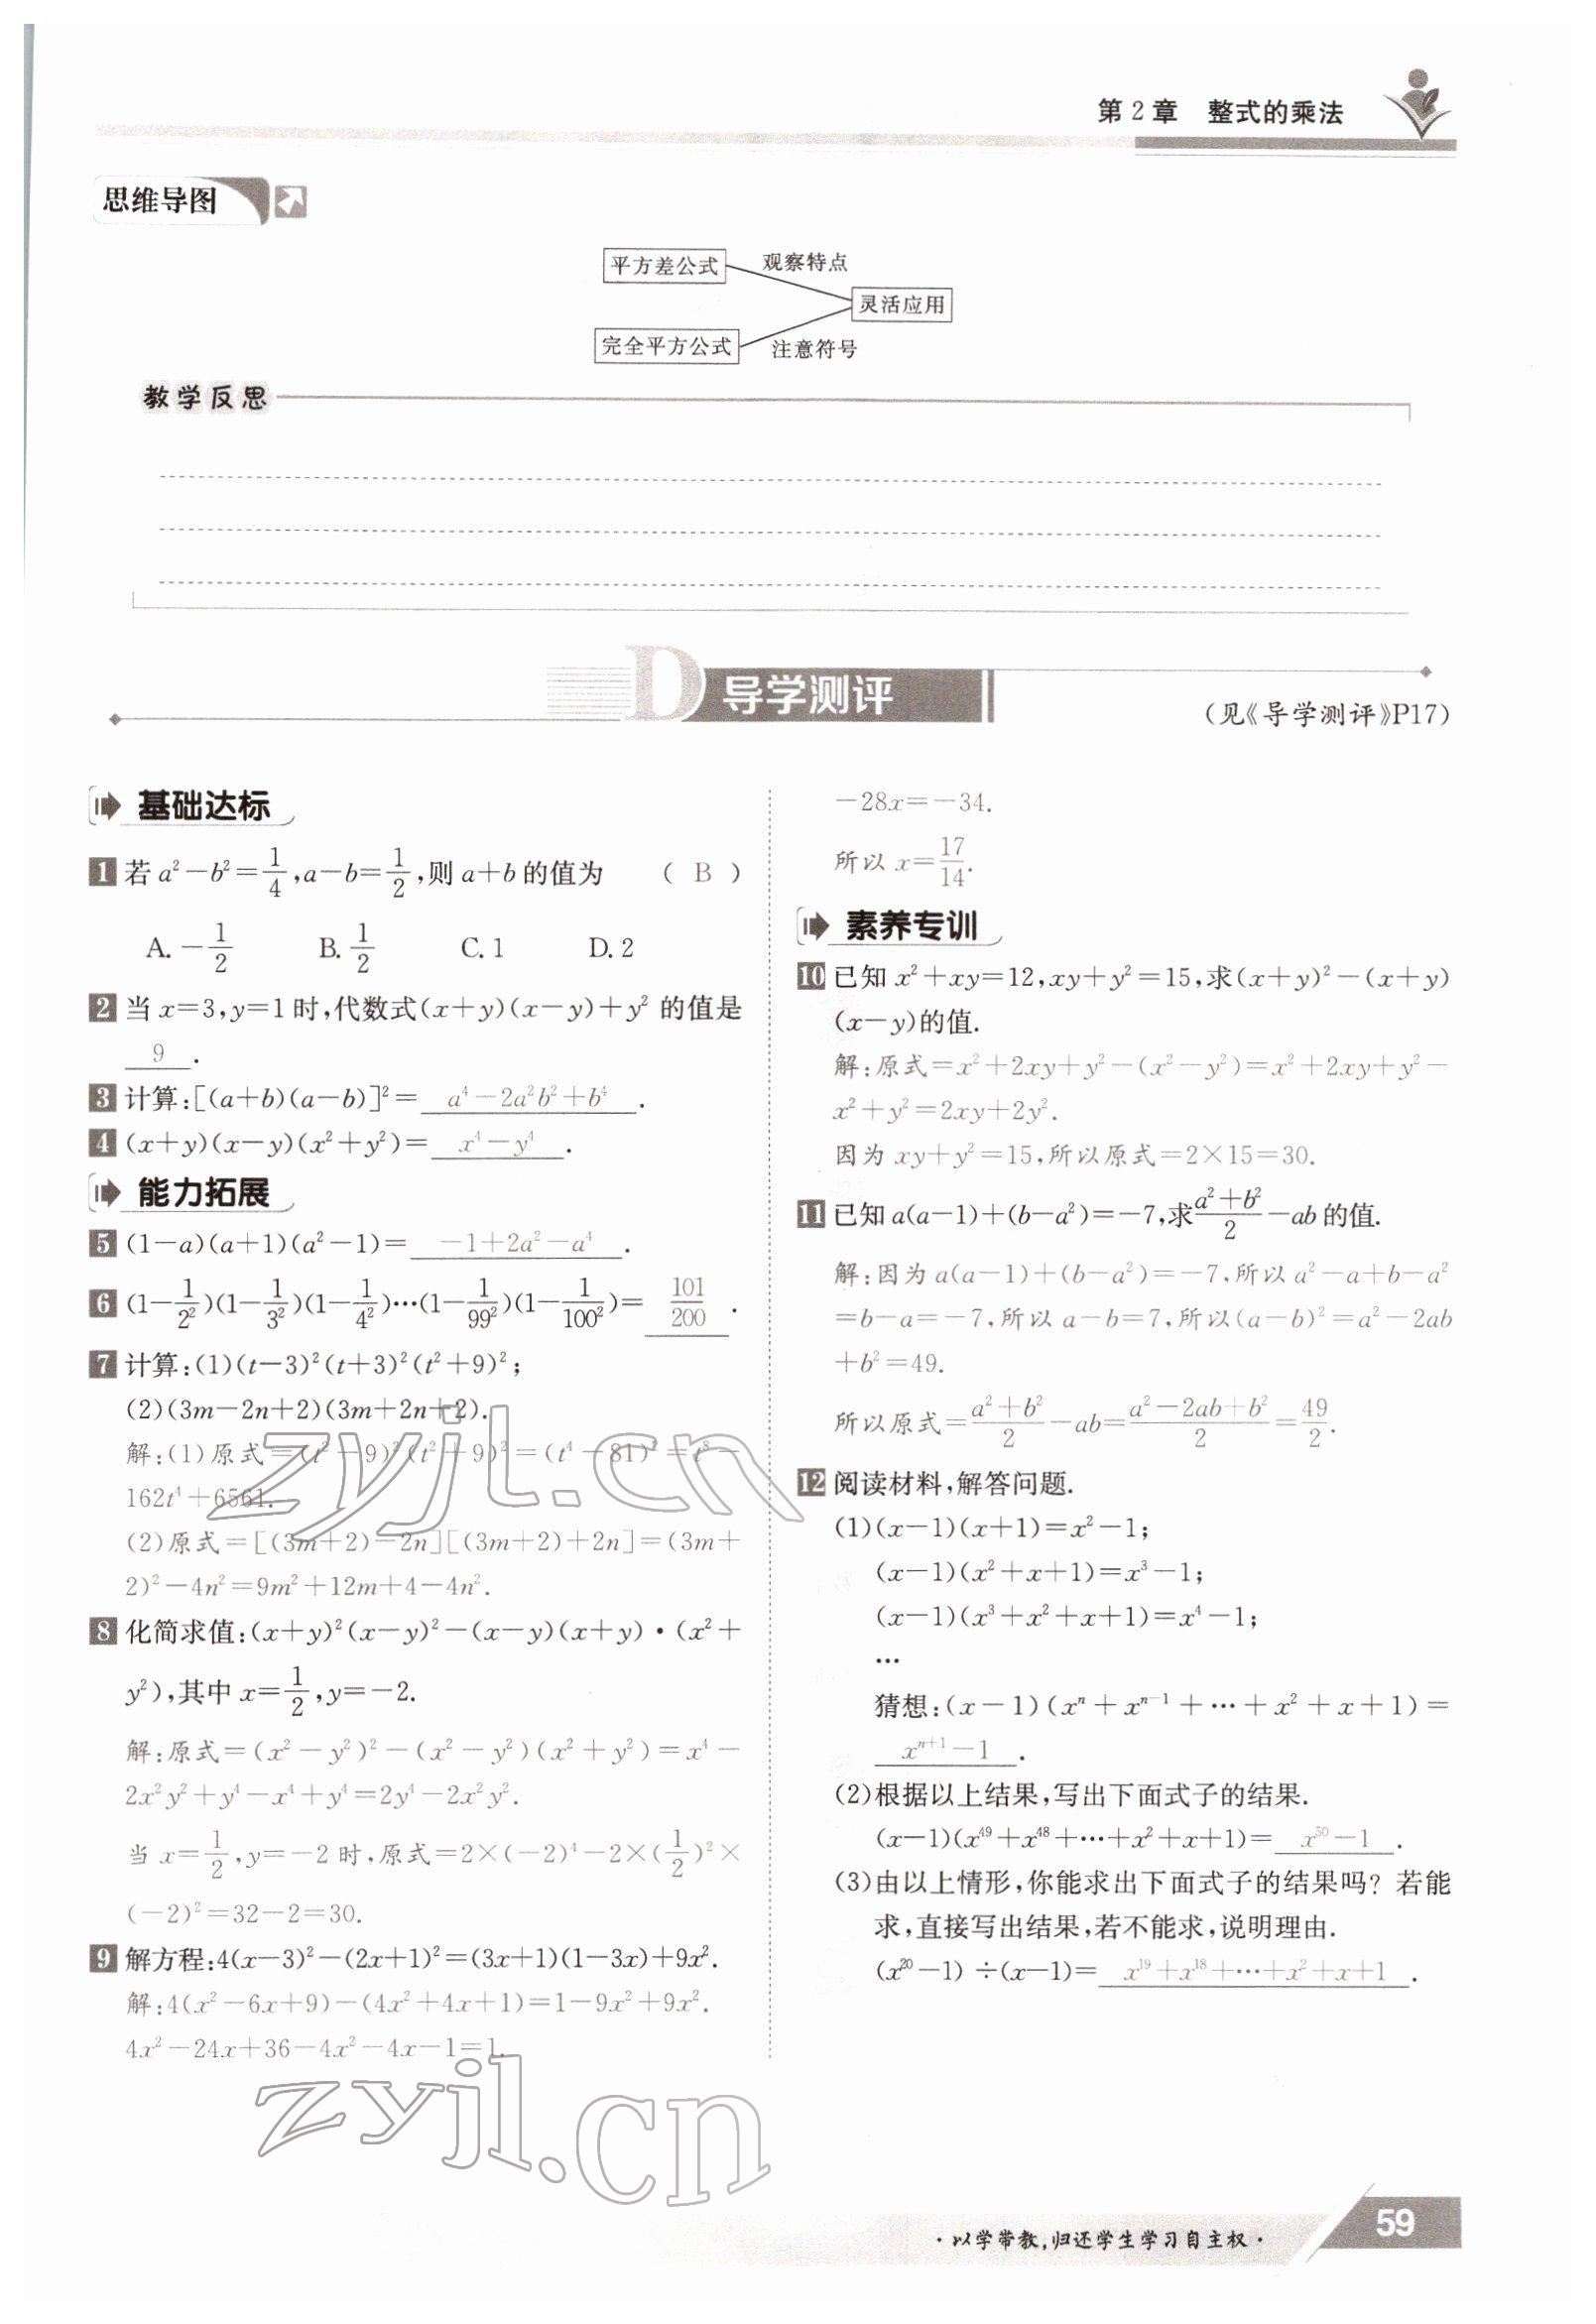 第2章 整式的乘法
思维导图
平方差公式 观察特点
灵活应用
完全平方公式 注意符号
教学反思
D 导学测评
(见《导学测评》P17)
基础达标
1 若 a²－b²＝1/4,a－b＝1/2,则 a＋b 的值为 ( B )
A. －1/2 B. 1/2 C. 1 D. 2
2 当 x＝3,y＝1 时,代数式(x＋y)(x－y)＋y² 的值是
9 .
3 计算:[(a＋b)(a－b)]²＝ a⁴－2a²b²＋b⁴ .
4 (x＋y)(x－y)(x²＋y²)＝ x⁴－y⁴ .
能力拓展
5 (1－a)(a＋1)(a²－1)＝ －1＋2a²－a⁴ .
6 (1－1/2²)(1－1/3²)(1－1/4²)…(1－1/99²)(1－1/100²)＝ 101/200 .
7 计算:(1)(t－3)²(t＋3)²(t²＋9)²;
(2)(3m－2n＋2)(3m＋2n＋2).
解:(1)原式＝(t²－9)²(t²＋9)²＝(t⁴－81)²＝t⁸－
162t⁴＋6561.
(2)原式＝[(3m＋2)－2n][(3m＋2)＋2n]＝(3m＋
2)²－4n²＝9m²＋12m＋4－4n².
8 化简求值:(x＋y)²(x－y)²－(x－y)(x＋y)·(x²＋
y²),其中 x＝1/2,y＝－2.
解:原式＝(x²－y²)²－(x²－y²)(x²＋y²)＝x⁴－
2x²y²＋y⁴－x⁴＋y⁴＝2y⁴－2x²y².
当 x＝1/2,y＝－2 时,原式＝2×(－2)⁴－2×(1/2)²×
(－2)²＝32－2＝30.
9 解方程:4(x－3)²－(2x＋1)²＝(3x＋1)(1－3x)＋9x².
解:4(x²－6x＋9)－(4x²＋4x＋1)＝1－9x²＋9x².
4x²－24x＋36－4x²－4x－1＝1.
－28x＝－34.
所以 x＝17/14.
素养专训
10 已知 x²＋xy＝12,xy＋y²＝15,求(x＋y)²－(x＋y)
(x－y)的值.
解:原式＝x²＋2xy＋y²－(x²－y²)＝x²＋2xy＋y²－
x²＋y²＝2xy＋2y².
因为 xy＋y²＝15,所以原式＝2×15＝30.
11 已知 a(a－1)＋(b－a²)＝－7,求(a²＋b²)/2－ab 的值.
解:因为 a(a－1)＋(b－a²)＝－7,所以 a²－a＋b－a²
＝b－a＝－7,所以 a－b＝7,所以(a－b)²＝a²－2ab
＋b²＝49.
所以原式＝(a²＋b²)/2－ab＝(a²－2ab＋b²)/2＝49/2.
12 阅读材料,解答问题.
(1)(x－1)(x＋1)＝x²－1;
(x－1)(x²＋x＋1)＝x³－1;
(x－1)(x³＋x²＋x＋1)＝x⁴－1;
…
猜想:(x－1)(xⁿ＋xⁿ⁻¹＋…＋x²＋x＋1)＝
xⁿ⁺¹－1 .
(2)根据以上结果,写出下面式子的结果.
(x－1)(x⁴⁹＋x⁴⁸＋…＋x²＋x＋1)＝ x⁵⁰－1 .
(3)由以上情形,你能求出下面式子的结果吗? 若能
求,直接写出结果,若不能求,说明理由.
(x²⁰－1)÷(x－1)＝ x¹⁹＋x¹⁸＋…＋x²＋x＋1 .
zyjl.cn
zyjl.cn
·以学带教,归还学生学习自主权·
59